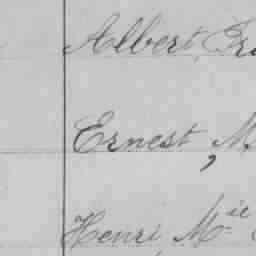 Albert, Fr
Ernest, M
Henri, M.ie